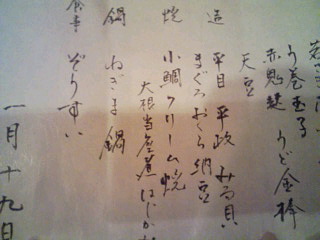 う巻玉子
赤貝鮭 うど金柑
天豆
造 平目 平政 みる貝
まぐろ おくら 納豆
焼 小鯛クリーム焼
大根当座煮 はじかみ
鍋 ねぎま鍋
食事 ぞうすい
一月十九日